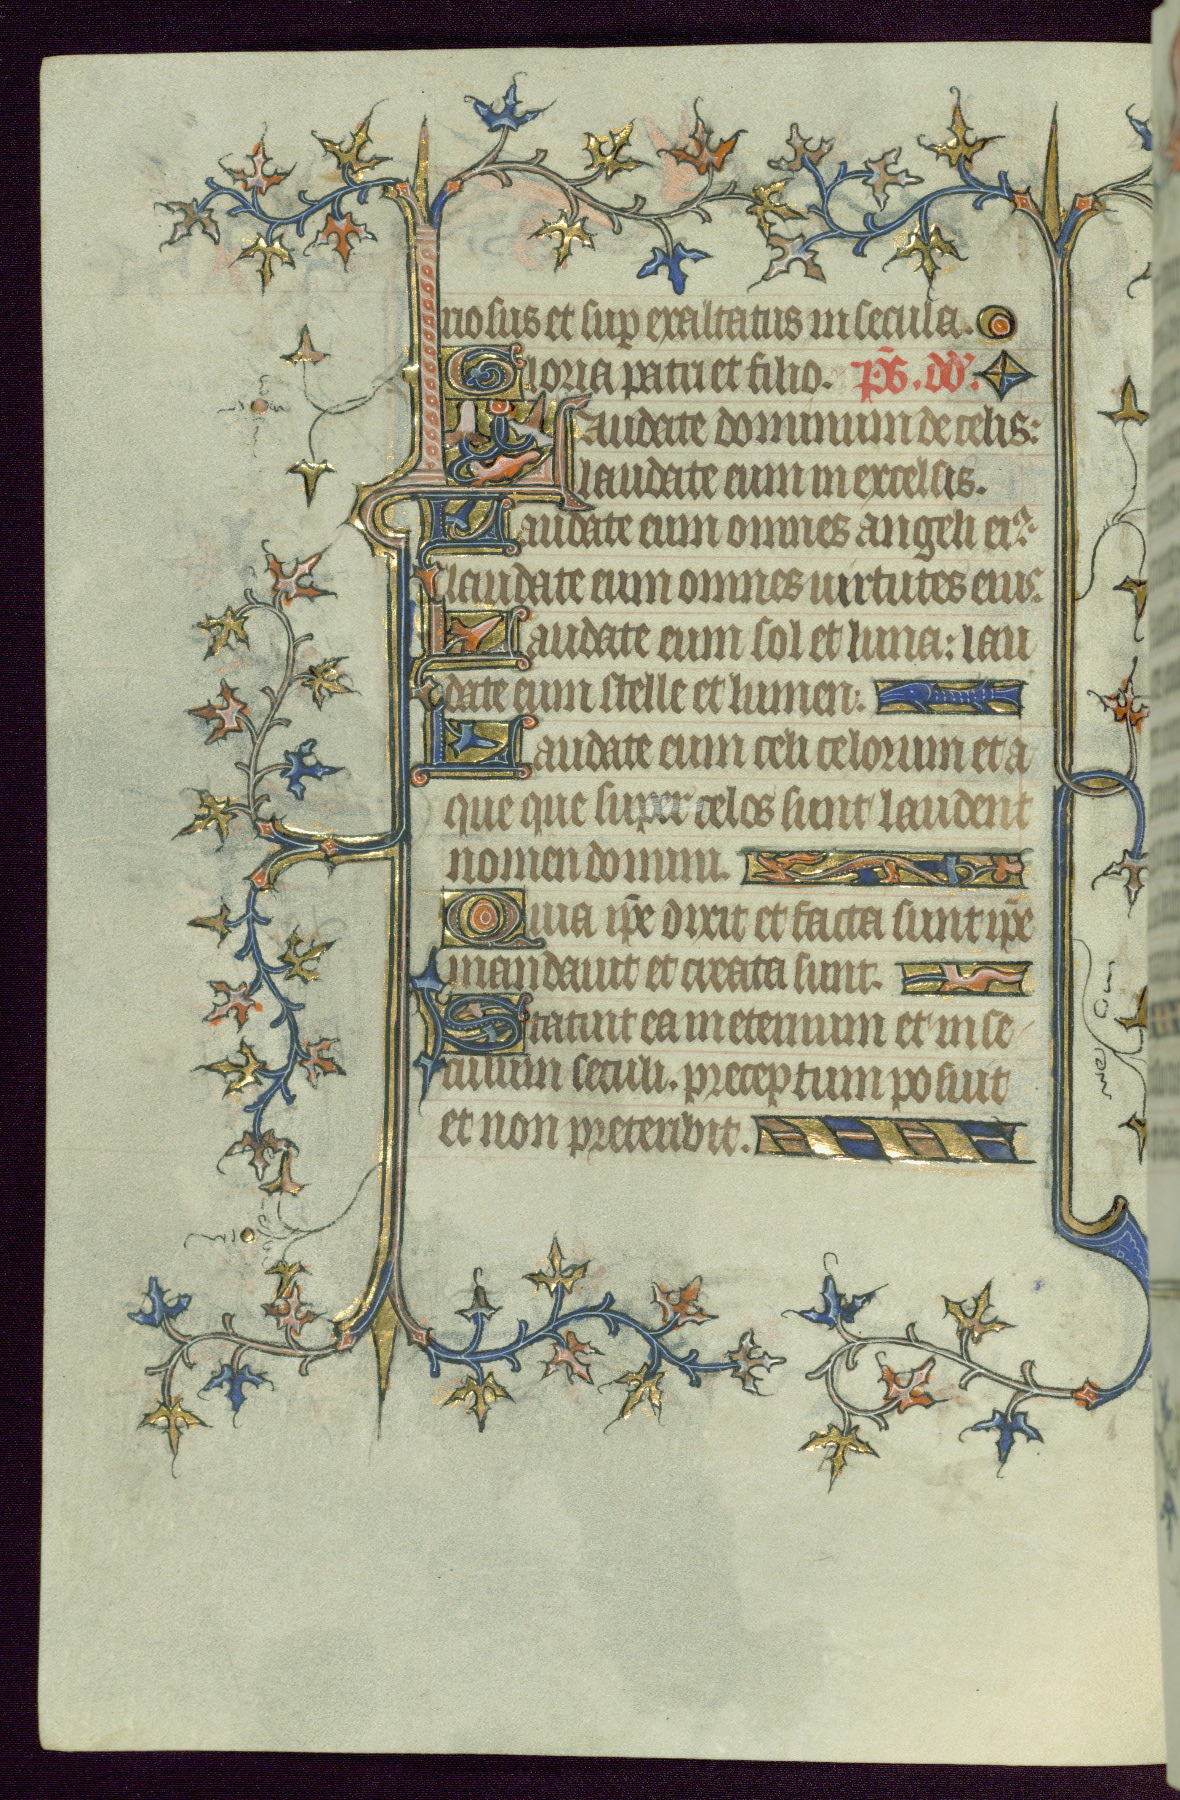 riosus et sup exaltatus in secula.
Gloria patri et filio. ps. dd.
Laudate dominum de celis:
laudate eum in excelsis.
Laudate eum omnes angeli ei⁹:
laudate eum omnes uirtutes eius.
Laudate eum sol et luna: lau
date eum stelle et lumen:
Laudate eum celi celorum et a
que que super celos sunt laudent
nomen domini.
Quia ip̄e dixit et facta sunt ip̄e
mandauit et creata sunt.
Statuit ea in eternum et in se
culum seculi. preceptum posuit
et non preteribit.